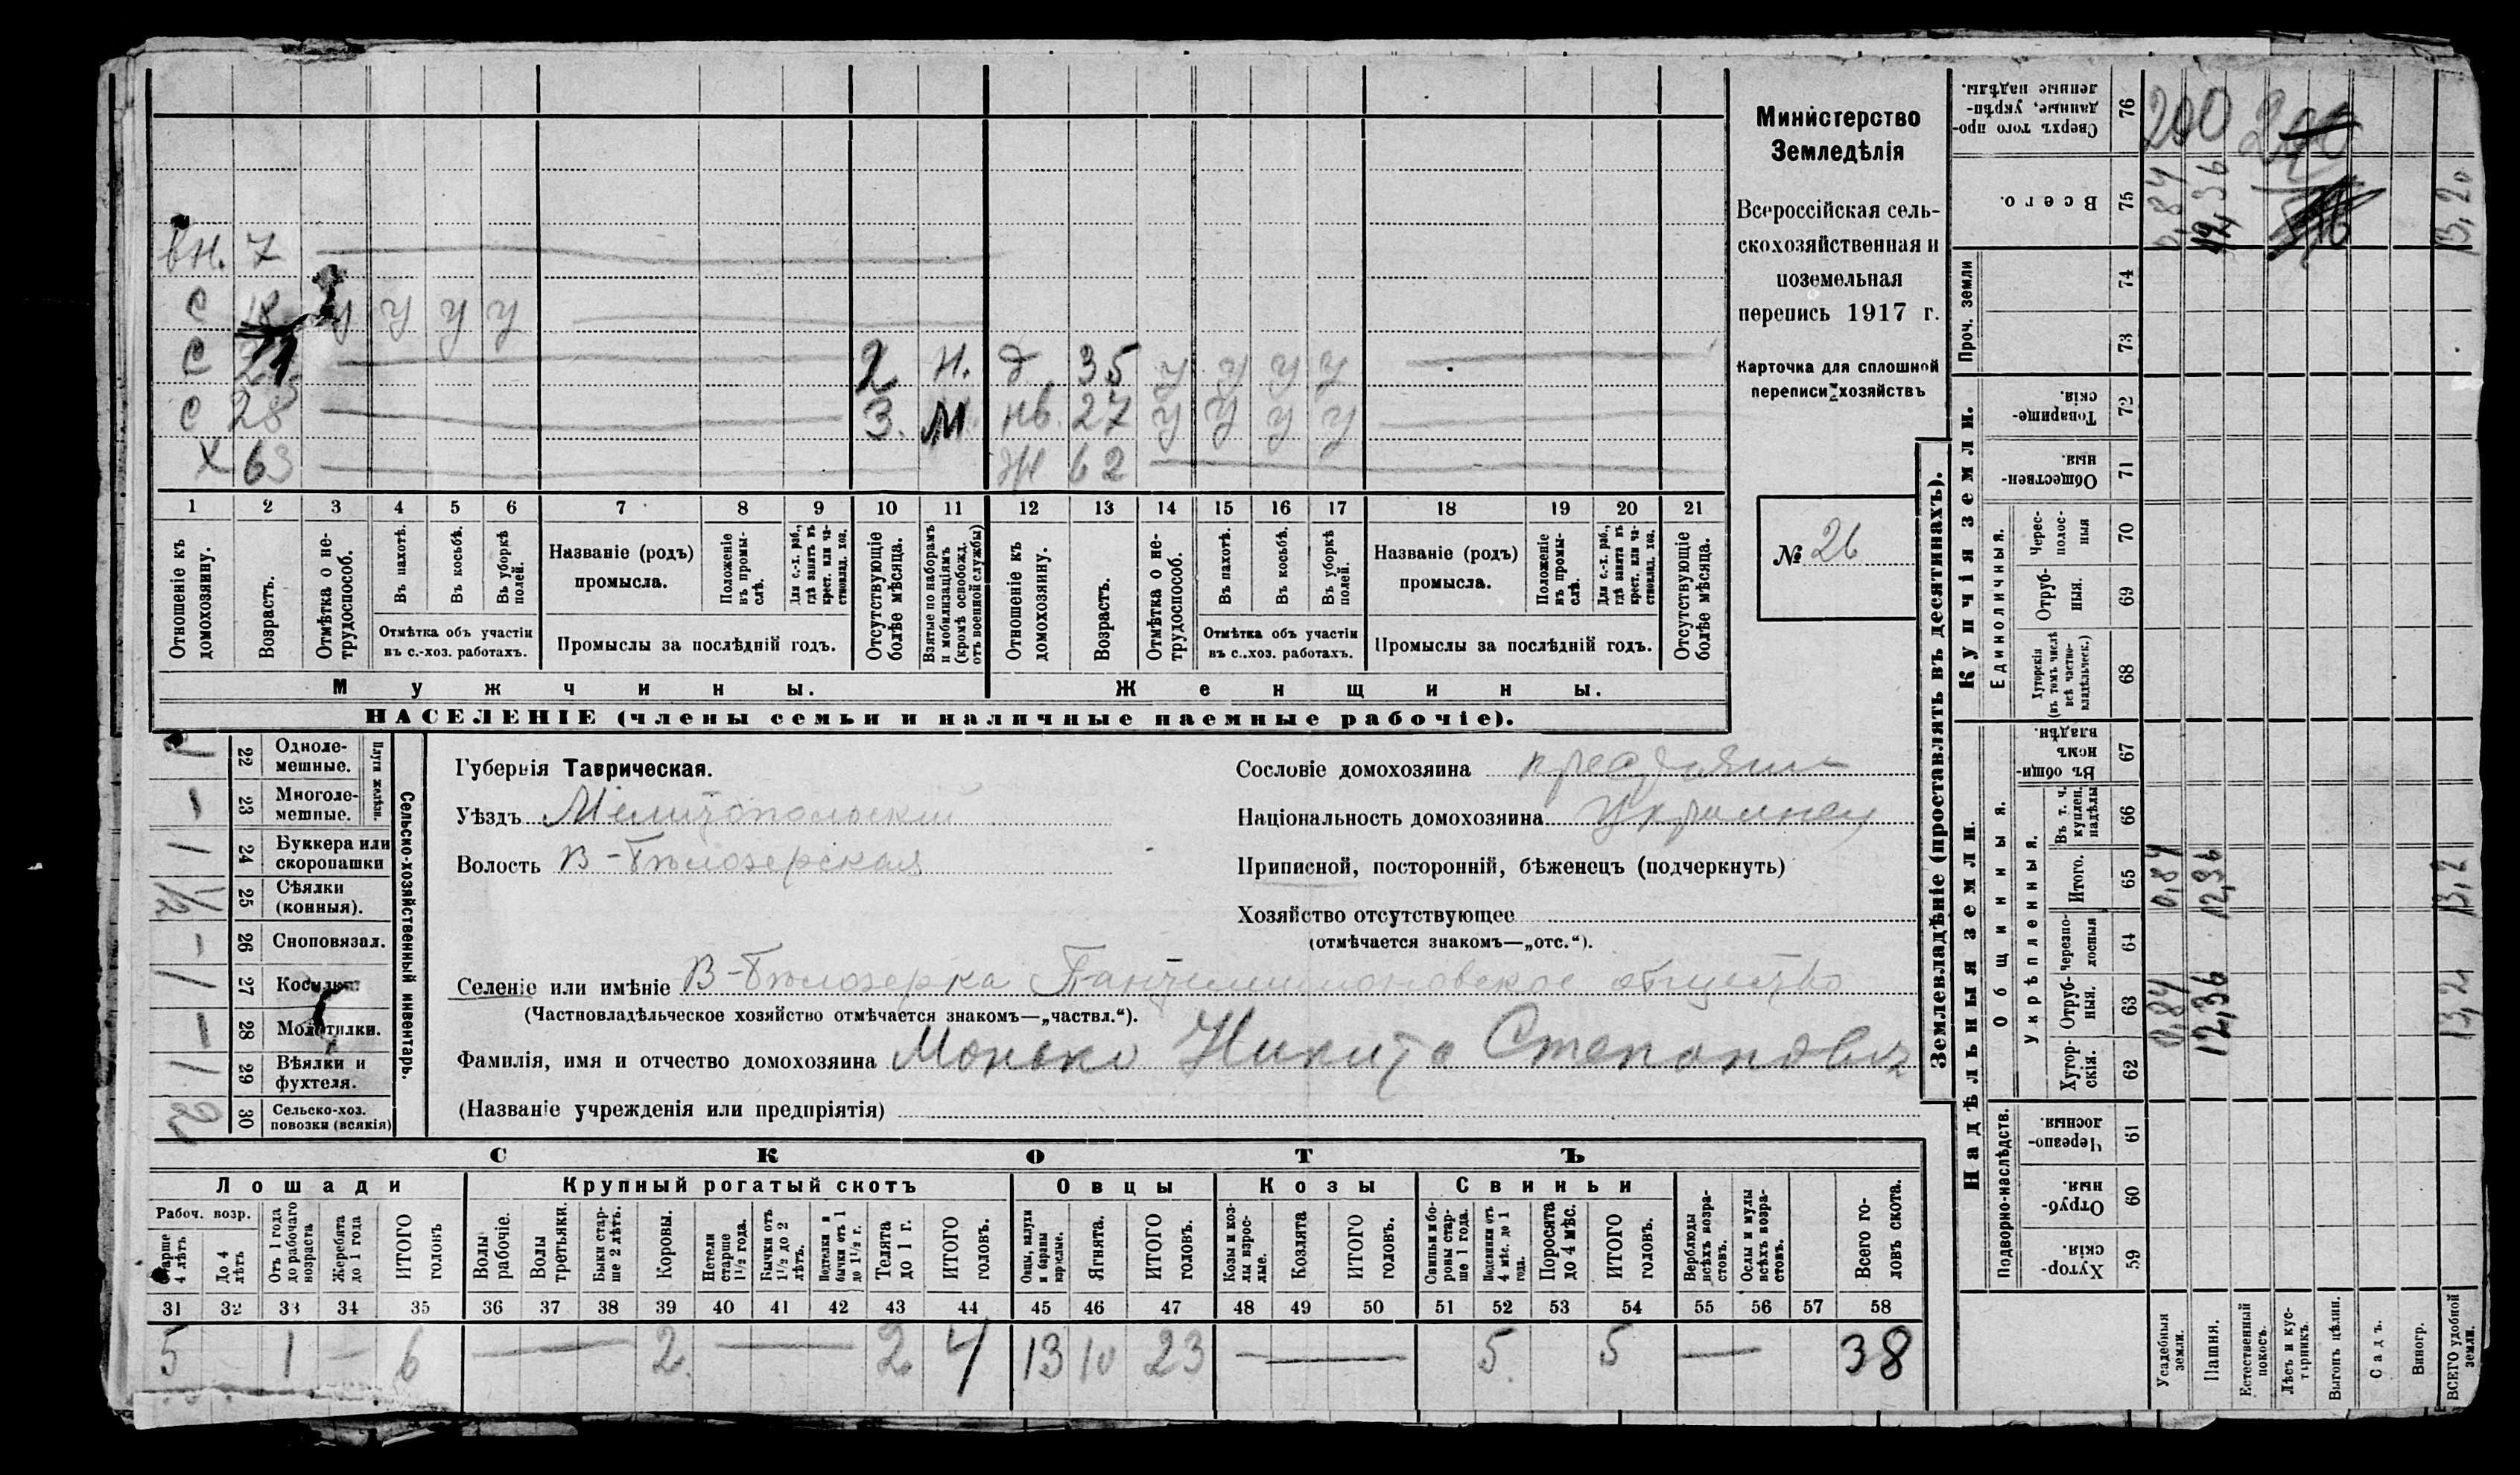 Министерство
Земледѣлія
Всероссійская сель-
скохозяйственная и
поземельная
перепись 1917 г.
Карточка для сплошной
переписи хозяйствъ
№ 26
вн. 7
с у у у у
с 2 н. д 35 у у у у
с 28 3. М. нв. 27 у у у у
х 63 ж 62
1 2 3 4 5 6 7 8 9 10 11 12 13 14 15 16 17 18 19 20 21
Отношеніе къ домохозяину.
Возрастъ.
Отмѣтка о не-трудоспособ.
Въ пахотѣ.
Въ косьбѣ.
Въ уборкѣ полей.
Отмѣтка объ участіи
въ с.-хоз. работахъ.
Названіе (родъ)
промысла.
Положеніе въ промы-слѣ.
Для с.-х. раб., гдѣ занятъ въ крест. или ча-стновлад. хоз.
Промыслы за послѣдній годъ.
Отсутствующіе болѣе мѣсяца.
Взятые по наборамъ и мобилизаціямъ (кромѣ освобожд. отъ военной службы)
Отношеніе къ домохозяину.
Возрастъ.
Отмѣтка о не-трудоспособ.
Въ пахотѣ.
Въ косьбѣ.
Въ уборкѣ полей.
Отмѣтка объ участіи
въ с.-хоз. работахъ.
Названіе (родъ)
промысла.
Положеніе въ промы-слѣ.
Для с.-х. раб., гдѣ занята въ крест. или ча-стновлад. хоз.
Промыслы за послѣдній годъ.
Отсутствующіе болѣе мѣсяца.
Мужчины. Женщины.
НАСЕЛЕНІЕ (члены семьи и наличные наемные рабочіе).
Сельско-хозяйственный инвентарь.
Плуги желѣзн.
22 Одноле-мешные. 1
23 Многоле-мешные. –
24 Буккера или скоропашки 1
25 Сѣялки (конныя). 1/2
26 Сноповязал. –
27 Косилки 1
28 Молотилки. –
29 Вѣялки и фухтеля. 1
30 Сельско-хоз. повозки (всякія) 2
Губернія Таврическая.
Уѣздъ Мелитопольскій
Волость В-Бѣлозерская
Сословіе домохозяина крестьянин
Національность домохозяина Украинец
Приписной, посторонній, бѣженецъ (подчеркнуть)
Хозяйство отсутствующее
(отмѣчается знакомъ—„отс.“).
Селеніе или имѣніе В-Бѣлозерка Пантелимоновское общество
(Частновладѣльческое хозяйство отмѣчается знакомъ—„частвл.“).
Фамилія, имя и отчество домохозяина Монько Никита Степанович
(Названіе учрежденія или предпріятія)
СКОТЪ
Лошади Крупный рогатый скотъ Овцы Козы Свиньи
Рабоч. возр.
Старше 4 лѣтъ
До 4 лѣтъ
Отъ 1 года до рабочаго возраста
Жеребята до 1 года
ИТОГО головъ
Волы рабочіе.
Волы третьяки.
Быки стар-ше 2 лѣтъ.
Коровы.
Нетели старше 1½ года.
Бычки отъ 1½ до 2 лѣтъ.
Подтелки и бычки отъ 1 до 1½ г.
Телята до 1 г.
ИТОГО головъ.
Овцы, валухи и бараны взрослые.
Ягнята.
ИТОГО головъ.
Козы и коз-лы взрос-лые.
Козлята
ИТОГО головъ.
Свиньи и бо-ровы стар-ше 1 года.
Подсвинки отъ 4 мѣс. до 1 года.
Поросята до 4 мѣс.
ИТОГО головъ.
Верблюды всѣхъ возра-стовъ.
Ослы и мулы всѣхъ возра-стовъ.
Всего го-ловъ скота.
31 32 33 34 35 36 37 38 39 40 41 42 43 44 45 46 47 48 49 50 51 52 53 54 55 56 57 58
5 1 – 6 — 2 — 2 4 13 10 23 — 5 5 — 38
Землевладѣніе (проставлять въ десятинахъ).
Сверхъ того про-данные, укрѣп-ленные надѣлы. 76 200
Всего. 75 0,84 12,36 13,20
Проч. земли 74
73
Купчія земли.
Товарище-скія. 72
Обществен-ныя 71
Единоличныя.
Черес-полос-ныя 70
Отруб-ныя. 69
Хуторскія (въ томъ числѣ всѣ частно-владѣльческ.) 68
Надѣльныя земли.
Общинныя.
Въ общи-номъ владѣн. 67
Укрѣпленныя.
Въ т. ч. куплен. надѣлы 66
Итого. 65 0,84 12,36 13,2
Черезпо-лосныя 64
Отруб-ныя. 63 0,84 12,36 13,2
Хутор-скія. 62
Подворно-наслѣдств.
Черезпо-лосныя. 61
Отруб-ныя. 60
Хутор-скія. 59
Усадебныя земли.
Пашня.
Естественный покосъ.
Лѣсъ и кус-тарникъ.
Выгонъ цѣлин.
Садъ.
Виногр.
ВСЕГО удобной земли.